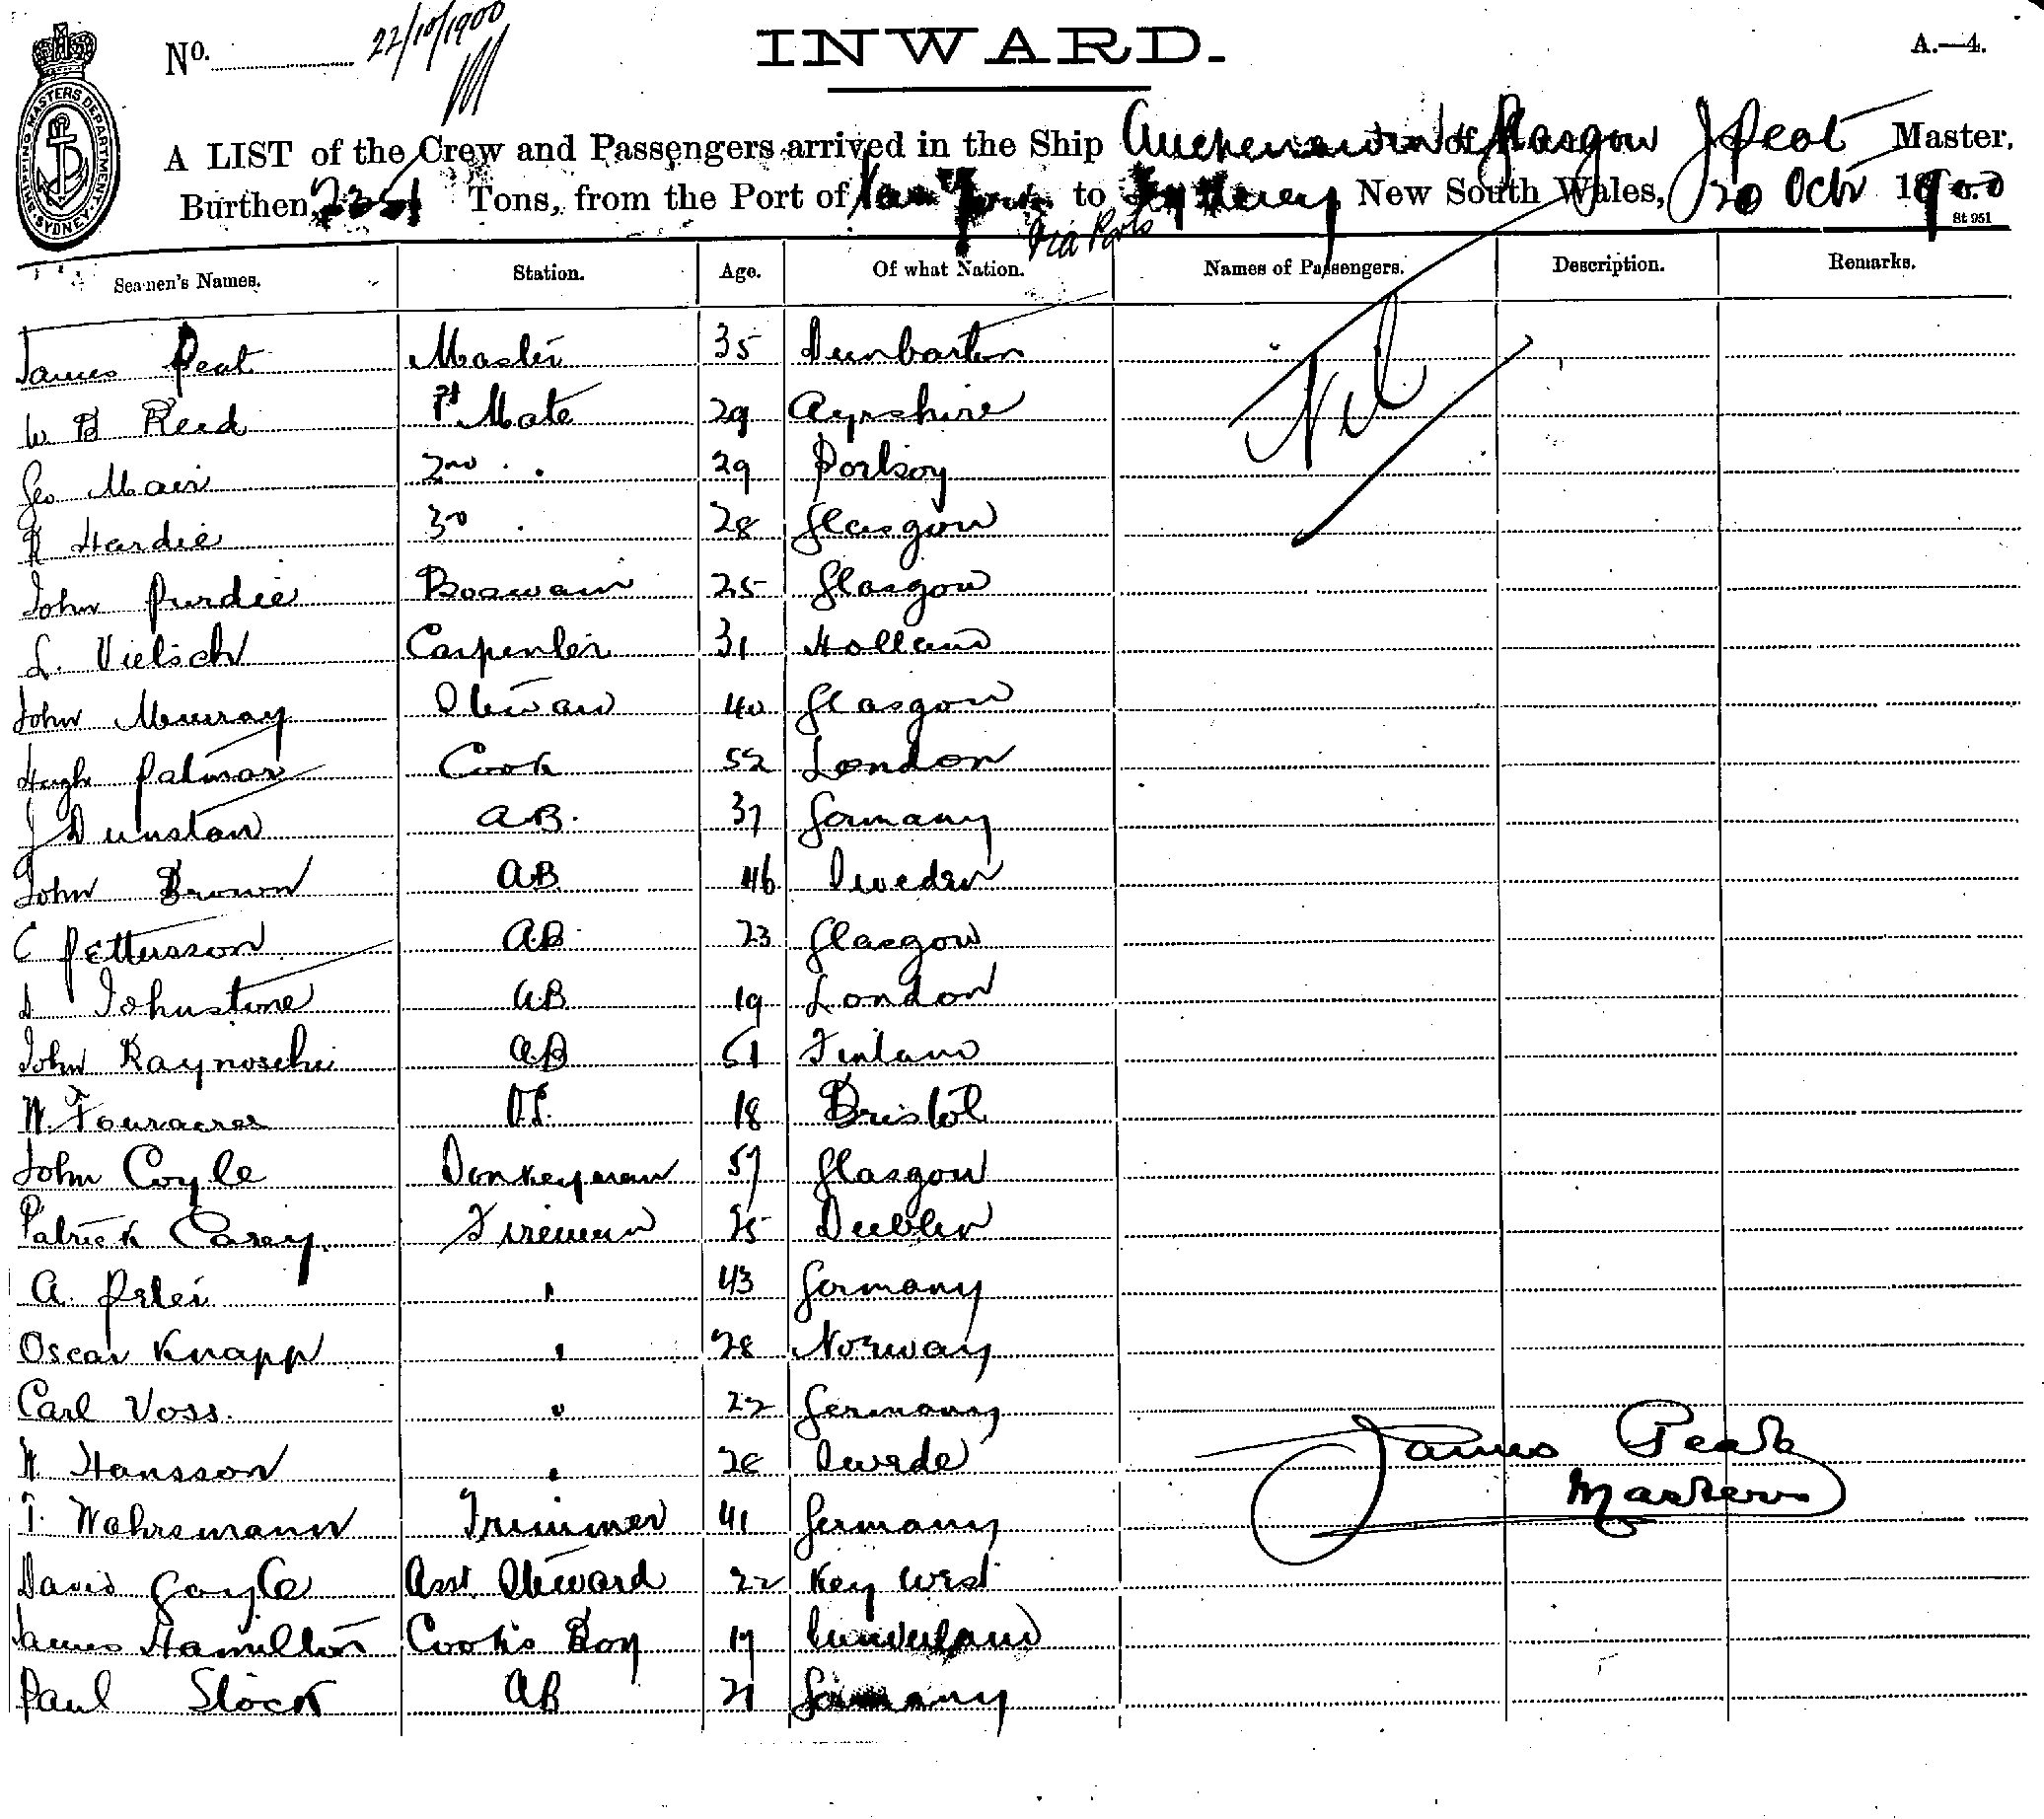 No. 22/10/1900
INWARD.
A.—4.
SHIPPING MASTERS DEPARTMENT SYDNEY
A LIST of the Crew and Passengers arrived in the Ship of Glasgow J Peat Master,
Burthen Tons, from the Port of to Sydney New South Wales, 20 Octr 1900
Via Ports
St 951
Seamen's Names. Station. Age. Of what Nation. Names of Passengers. Description. Remarks.
James Peat Master 35 Dunbarton
Nil
W B Reed 1st Mate 29 Ayrshire
Geo Mair 2nd 29 Portsoy
R Hardie 3rd 28 Glasgow
John Purdie Boswain 25 Glasgow
L. Carpenter 31 Holland
John Murray Steward 40 Glasgow
Hugh Palmar Cook 52 London
J Dunstan AB. 37 Germany
John Brown AB 46 Sweden
C Pettersson AB 23 Glasgow
Johnstone AB 19 London
John AB 51 Finland
W. Fouracres OS. 18 Bristol
John Coyle Donkeyman 57 Glasgow
Patrick Casey. Fireman 25 Dublin
A. Peter " 43 Germany
Oscar Knapp " 28 Norway
Carl Voss. " 22 Germany
Hansson " Swede
T. Wahrsmann Trimmer 41 Germany
David Gayle Asst Steward 22 Key West
James Hamilton Cook's Boy 17 Sunderland
Paul Stock AB 21 Germany
James Peat
Master